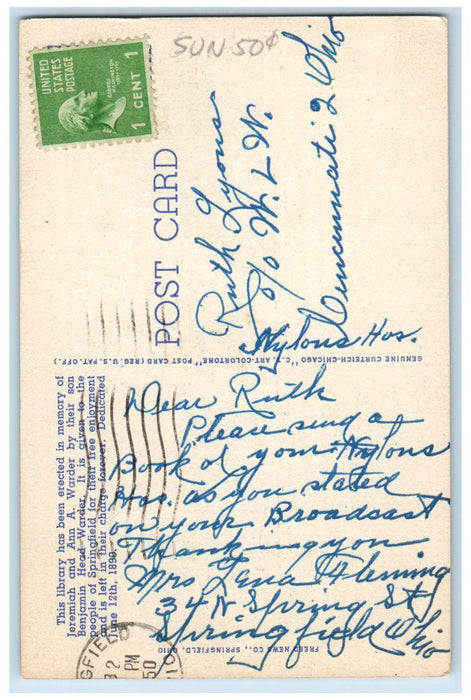 SUN 50¢
UNITED
STATES
POSTAGE
1 CENT 1
This library has been erected in memory of
Jeremiah and Ann A. Warder by their son
Benjamin Head Warder. It is given to the
people of Springfield for their free enjoyment
and is left in their charge forever. Dedicated
June 12th, 1890.
POST CARD
GENUINE CURTEICH-CHICAGO "C.T. ART-COLORTONE" POST CARD (REG. U.S. PAT. OFF.)
FREED NEWS CO., SPRINGFIELD, OHIO
GFIELD
PM
50
Ruth Lyons
c/o W. L W.
Cincinnati 2 Ohio
Nylons Hos.
Dear Ruth
Please send a
Book of your Nylons
Hos. as you stated
on your Broadcast
Thanking you
Mrs Lena Fleming
34 N Spring St
Springfield Ohio